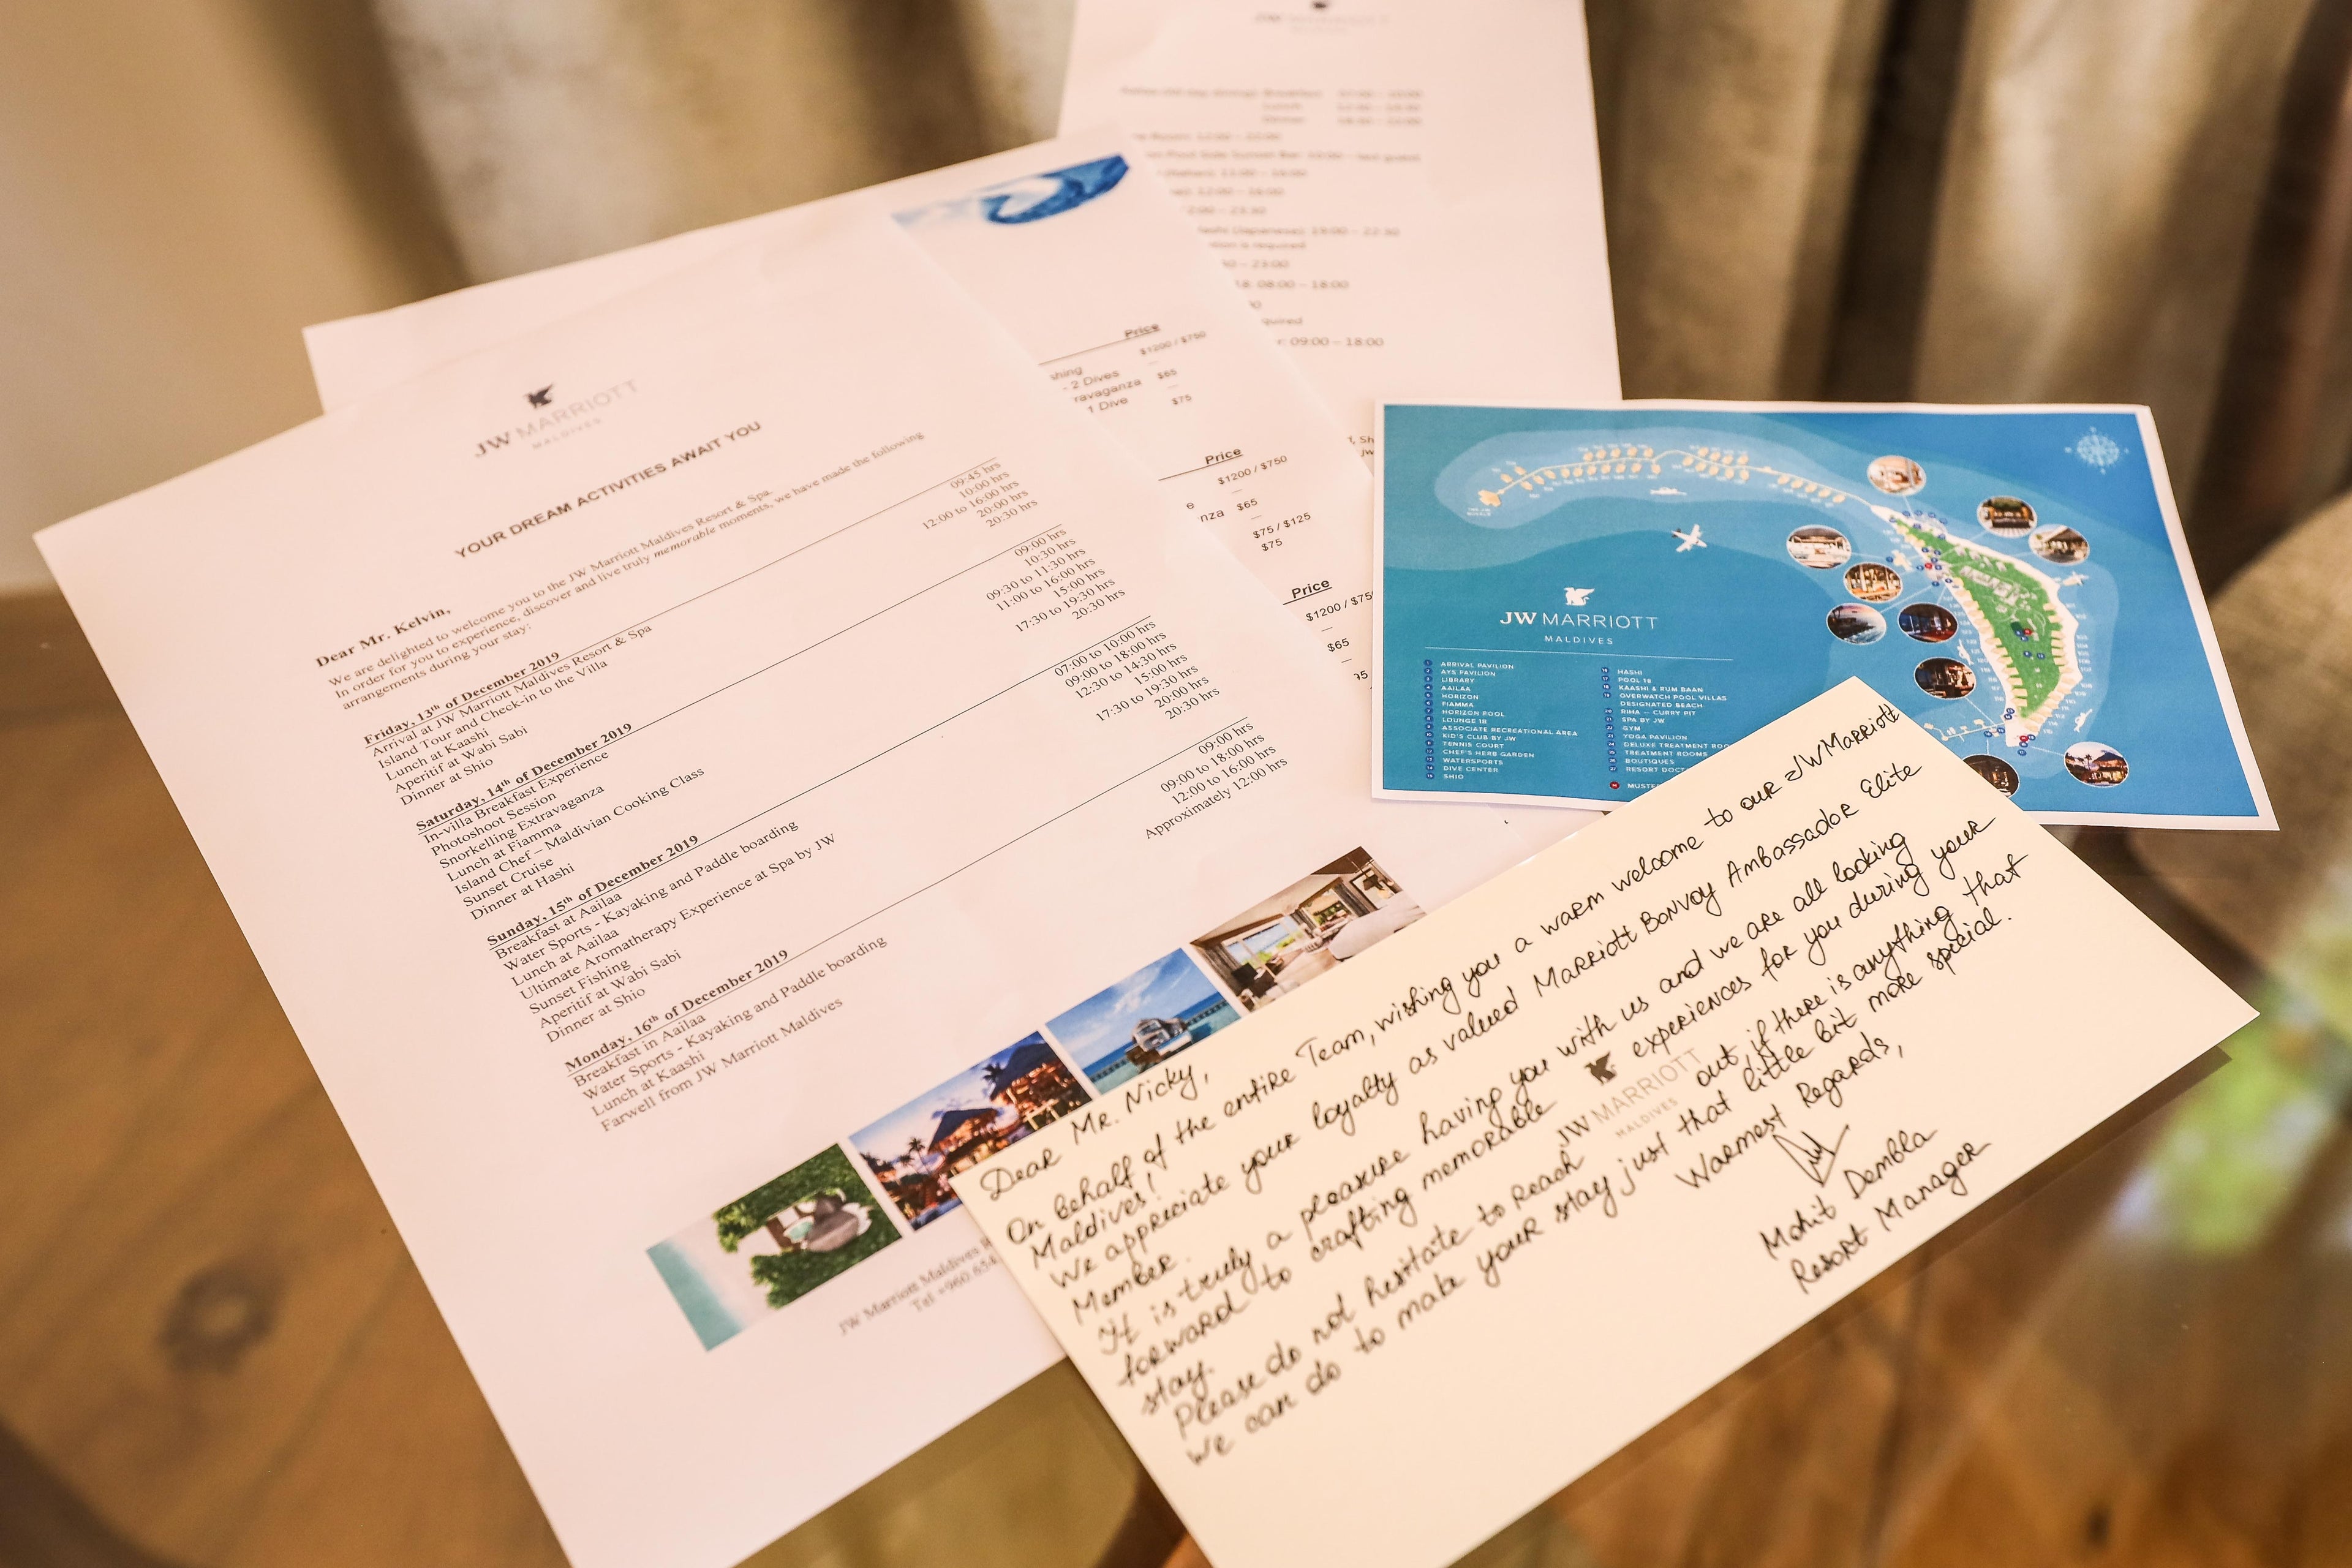 JW MARRIOTT
MALDIVES
YOUR DREAM ACTIVITIES AWAIT YOU
Dear Mr. Kelvin,
We are delighted to welcome you to the JW Marriott Maldives Resort & Spa.
In order for you to experience, discover and live truly memorable moments, we have made the following
arrangements during your stay:
Friday, 13th of December 2019
Arrival at JW Marriott Maldives Resort & Spa 09:45 hrs
Island Tour and Check-in to the Villa 10:00 hrs
Lunch at Kaashi 12:00 to 16:00 hrs
Aperitif at Wabi Sabi 20:00 hrs
Dinner at Shio 20:30 hrs
Saturday, 14th of December 2019
In-villa Breakfast Experience 09:00 hrs
Photoshoot Session 10:30 hrs
Snorkelling Extravaganza 09:30 to 11:30 hrs
Lunch at Fiamma 11:00 to 16:00 hrs
Island Chef – Maldivian Cooking Class 15:00 hrs
Sunset Cruise 17:30 to 19:30 hrs
Dinner at Hashi 20:30 hrs
Sunday, 15th of December 2019
Breakfast at Aailaa 07:00 to 10:00 hrs
Water Sports - Kayaking and Paddle boarding 09:00 to 18:00 hrs
Lunch at Aailaa 12:30 to 14:30 hrs
Ultimate Aromatherapy Experience at Spa by JW 15:00 hrs
Sunset Fishing 17:30 to 19:30 hrs
Aperitif at Wabi Sabi 20:00 hrs
Dinner at Shio 20:30 hrs
Monday, 16th of December 2019
Breakfast in Aailaa 09:00 hrs
Water Sports - Kayaking and Paddle boarding 09:00 to 18:00 hrs
Lunch at Kaashi 12:00 to 16:00 hrs
Farwell from JW Marriott Maldives Approximately 12:00 hrs
JW Marriott Maldives R
Tel +960 654
Price
shing $1200 / $750
- 2 Dives
ravaganza $65
1 Dive
$75
Price
$1200 / $750
e
nza $65
$75 / $125
$75
Price
$1200 / $750
$65
JW MARRIOTT
12:00 – 16:00
08:00 – 18:00
09:00 – 18:00
JW MARRIOTT
MALDIVES
1 ARRIVAL PAVILION
2 AYS PAVILION
3 LIBRARY
4 AAILAA
5 HORIZON
6 FIAMMA
7 HORIZON POOL
8 LOUNGE 18
9 ASSOCIATE RECREATIONAL AREA
10 KID'S CLUB BY JW
11 TENNIS COURT
12 CHEF'S HERB GARDEN
13 WATERSPORTS
14 DIVE CENTER
15 SHIO
16 HASHI
17 POOL 18
18 KAASHI & RUM BAAN
19 OVERWATER POOL VILLAS
DESIGNATED BEACH
20 RIHA – CURRY PIT
21 SPA BY JW
22 GYM
23 YOGA PAVILION
24 DELUXE TREATMENT ROO
25 TREATMENT ROOMS
26 BOUTIQUES
27 RESORT DOCT
MUSTE
Dear Mr. Nicky,
On behalf of the entire Team, wishing you a warm welcome to our JW Marriott
Maldives!
We appreciate your loyalty as valued Marriott Bonvoy Ambassador Elite
Member.
It is truly a pleasure having you with us and we are all looking
forward to crafting memorable experiences for you during your
stay.
Please do not hesitate to reach out, if there is anything that
we can do to make your stay just that little bit more special.
Warmest Regards,
Mohit Dembla
Resort Manager
JW MARRIOTT
MALDIVES